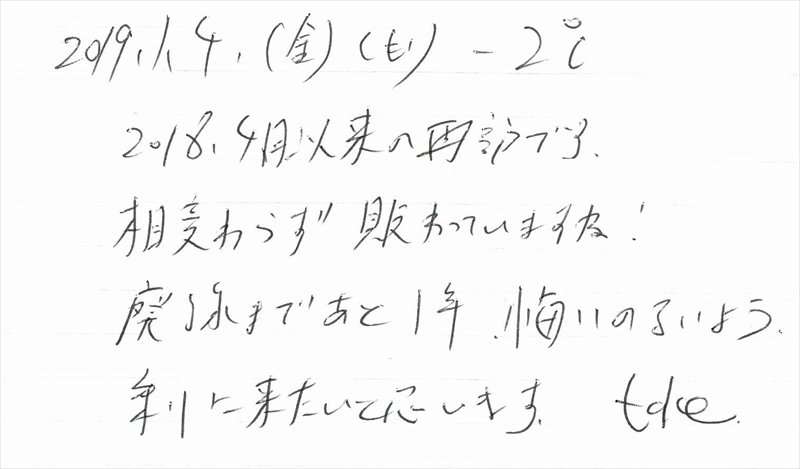 2019.1.4.(金)(もり) -2℃
2018.4月以来の再訪です.
相変わらず 賑わっていますね!
廃線まであと1年.悔いのないよう.
乗りに来たいと思います.